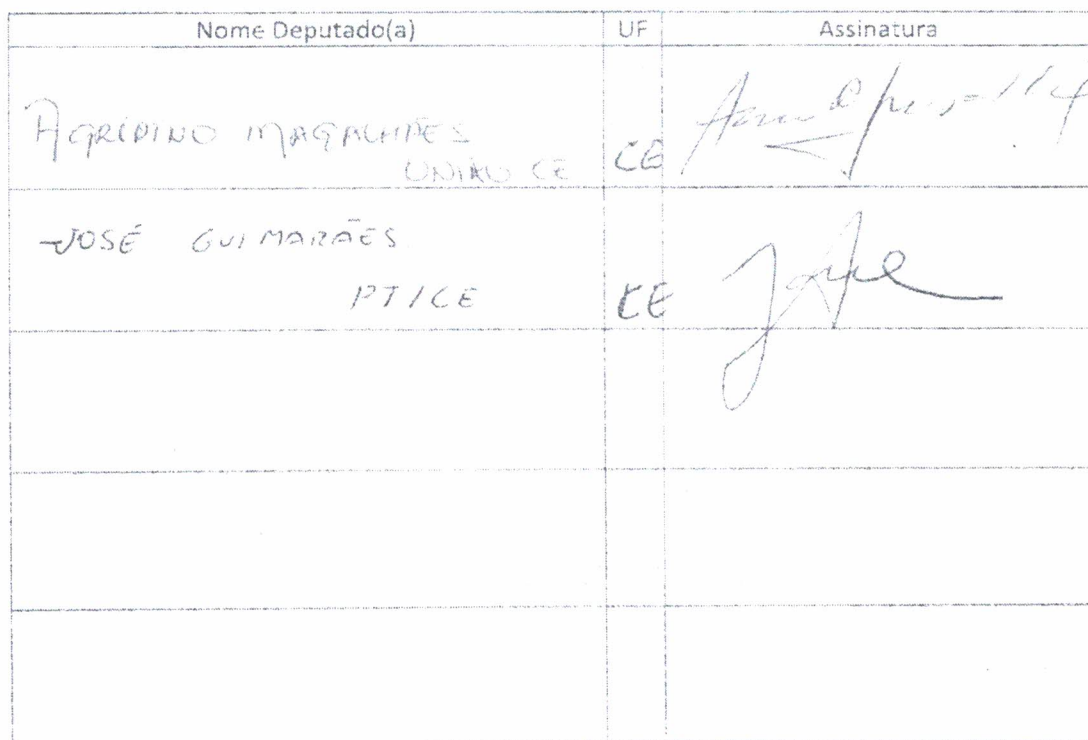 Nome Deputado(a) UF Assinatura
AGRIPINO MAGALHÃES
UNIÃO CE CE
JOSÉ GUIMARÃES
PT/CE CE